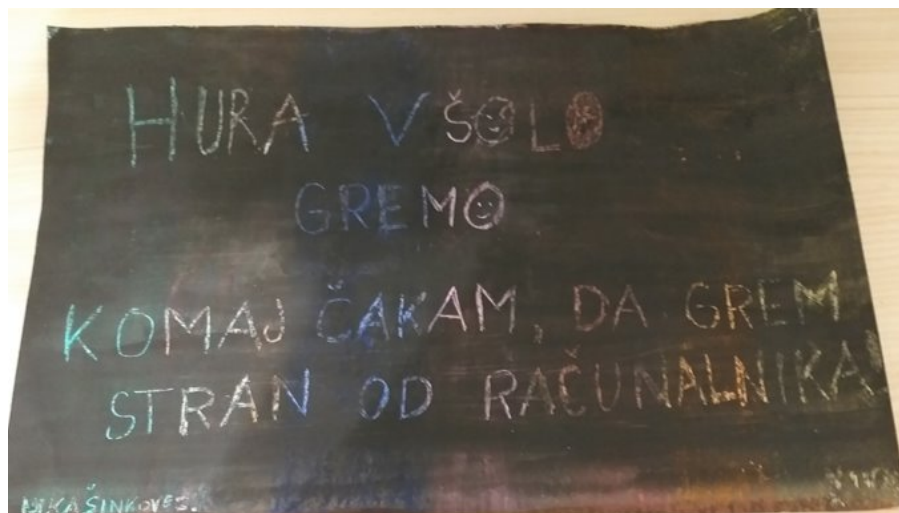 HURA V ŠOLO
GREMO
KOMAJ ČAKAM, DA GREM
STRAN OD RAČUNALNIKA!
NIKA ŠINKOVEC.